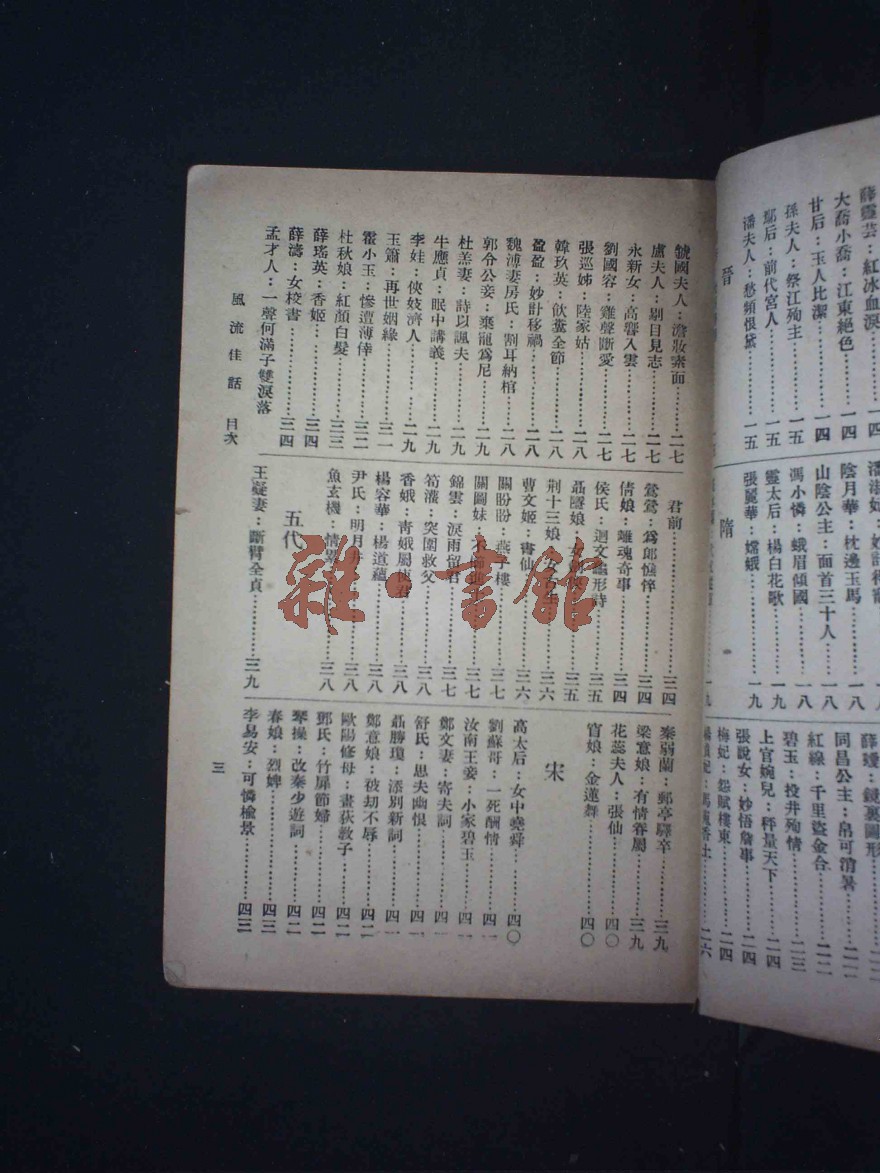 薛靈芸：紅冰血淚………一四
大喬小喬：江東絕色……一四
甘后：玉人比潔…………一四
孫夫人：祭江殉主………一五
鄢后：前代宮人…………一五
潘夫人：愁頻恨黛………一五
晉
陰月華：枕邊玉馬………一八
山陰公主：面首三十人…一八
馮小憐：蛾眉傾國………一八
靈太后：楊白花歌………一九
張麗華：嫦娥……………一九
隋
同昌公主：帛可消暑
紅線：千里盜金合………二二
碧玉：投井殉情…………二三
上官婉兒：秤量天下……二四
張說女：妙悟詹事………二四
梅妃：怨賦樓東…………二四
二六
虢國夫人：澹妝素面……二七
盧夫人：剔目見志………二七
永新女：高響入雲………二七
劉國容：雞聲斷愛………二七
張巡姊：陸家姑…………二八
韓玖英：飲糞全節………二八
盈盈：妙計移禍…………二八
魏溥妻房氏：割耳納棺…二八
郭令公妾：棄寵爲尼……二九
杜羔妻：詩以諷夫………二九
牛應貞：眠中講義………二九
李娃：俠妓濟人…………二九
玉簫：再世姻緣…………三一
霍小玉：慘遭薄倖………三二
杜秋娘：紅顏白髮………三三
薛瑤英：香姬……………三四
薛濤：女校書……………三四
孟才人：一聲何滿子雙淚落
君前……………………三四
鶯鶯：爲郎憔悴…………三四
倩娘：離魂奇事…………三四
侯氏：迴文龜形詩………三五
聶隱娘：女劍俠…………三五
荆十三娘：女…………三六
曹文姬：書仙……………三六
關盼盼：燕子樓…………三七
關圖妹：不………三七
錦雲：淚雨留君…………三七
荀灌：突圍救父…………三八
香娥：靑娥屬使君………三八
楊容華：楊道蘊…………三八
尹氏：明月…………三八
魚玄機：情…………三八
五代
王凝妻：斷臂全貞………三九
秦弱蘭：郵亭驛卒………三九
梁意娘：有情眷屬………三九
花蕊夫人：張仙…………四〇
窅娘：金蓮舞……………四〇
宋
高太后：女中堯舜………四〇
劉蘇哥：一死酬情………四一
汝南王妾：小家碧玉……四一
鄭文妻：寄夫詞…………四一
舒氏：思夫幽恨…………四一
聶勝瓊：添別新詞………四一
鄭意娘：被劫不辱………四二
歐陽修母：畫荻敎子……四二
鄧氏：竹扉節婦…………四二
琴操：改秦少遊詞………四二
春娘：烈婢………………四三
李易安：可憐榆景………四三
風流佳話　目次
三
雜·書館